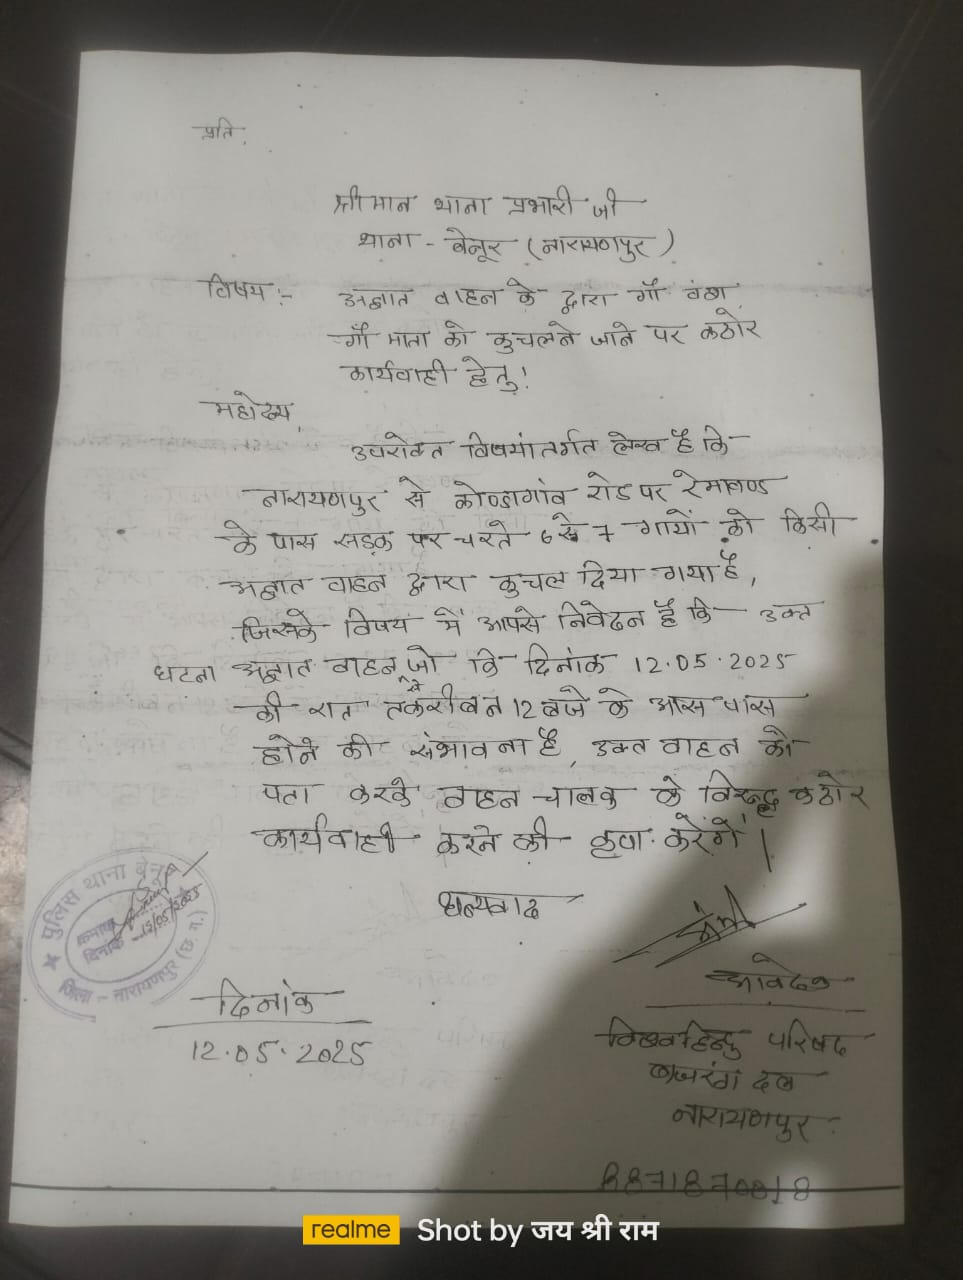 प्रति,
श्रीमान थाना प्रभारी जी
थाना - बेनूर (नारायणपुर)
विषय :- अज्ञात वाहन के द्वारा गौ वंश
गौ माता को कुचलने जाने पर कठोर
कार्यवाही हेतु!
महोदय,
उपरोक्त विषयांतर्गत लेख है कि
नारायणपुर से कोण्डागांव रोड पर रेमावण्ड
के पास सड़क पर चरते 6 से 7 गायों को किसी
अज्ञात वाहन द्वारा कुचल दिया गया है,
जिसके विषय में आपसे निवेदन है कि उक्त
घटना अज्ञात वाहन से जो कि दिनांक 12.05.2025
की रात तकरीबन 12 बजे के आस पास
होने की संभावना है, उक्त वाहन को
पता करके वाहन चालक के विरुद्ध कठोर
कार्यवाही करने की कृपा करेंगे।
धन्यवाद
पुलिस थाना बेनूर
क्रमांक
दिनांक 15/05/2025
जिला - नारायणपुर (छ.ग.)
दिनांक
12.05.2025
आवेदक
विश्व हिन्दु परिषद
बजरंग दल
नारायणपुर
realme Shot by जय श्री राम